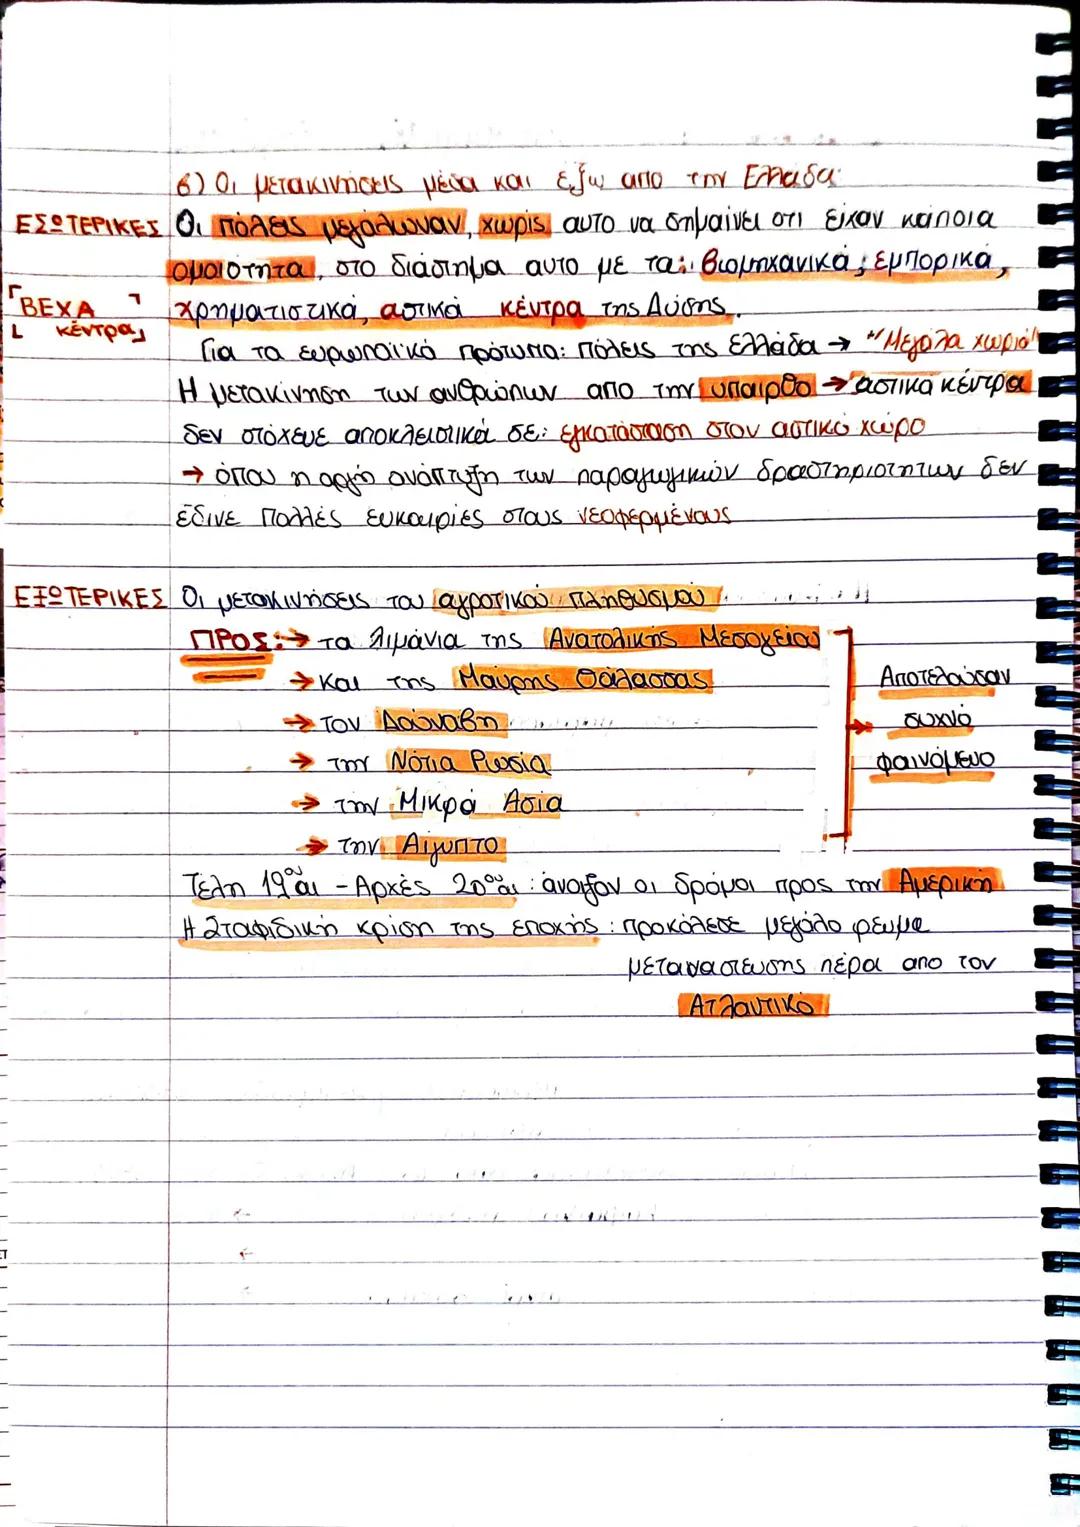 6) Οι μετακινήσεις μέσα και έξω απο την Ελλάδα:
ΕΣΩΤΕΡΙΚΕΣ Οι πόλεις μεγάλωναν, χωρίς αυτο να σημαίνει οτι είχαν κάποια
ομοιότητα, στο διάστημα αυτο με τα: βιομηχανικά, εμπορικά,
ΒΕΧΑ χρηματιστικά, αστικά κέντρα της Δύσης.
κέντρα
Για τα ευρωπαϊκά πρότυπα: πόλεις της Ελλάδα → "Μεγάλα χωριά"
Η μετακίνηση των ανθρώπων απο την υπαιρθο → αστικα κέντρα
δεν στόχευε αποκλειστικά σε: εγκατάσταση στον αστικό χώρο
→ όπου η αργή ανάπτυξη των παραγωγικών δραστηριοτήτων δεν
έδινε πολλές ευκαιρίες στους νεοφερμένους
ΕΞΩΤΕΡΙΚΕΣ Οι μετακινήσεις του αγροτικού πληθυσμού
ΠΡΟΣ: → τα λιμάνια της Ανατολικής Μεσογείου
→ και της Μαύρης Θάλασσας
→ τον Δούναβη
→ την Νότια Ρωσία
→ την Μικρά Ασία
→ την Αίγυπτο
Αποτελούσαν
συχνό
φαινόμενο
Τέλη 19ου αι - Αρχές 20ου αι: άνοιξαν οι δρόμοι προς την Αμερική
Η Σταφιδική κρίση της εποχής: προκάλεσε μεγάλο ρεύμα
μετανάστευσης πέρα απο τον
Ατλαντικό